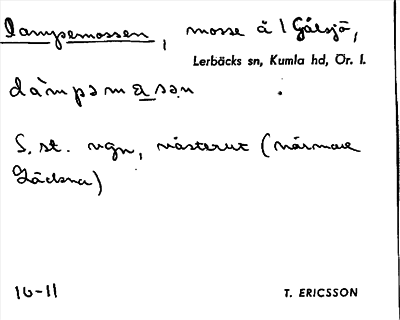 Dampemossen, mosse å 1 Gålsjö,
Lerbäcks sn, Kumla hd, Ör. l.
dàmpəmåsən
S. st. vgn, västerut (närmare
Läckna)
16-11
T. ERICSSON